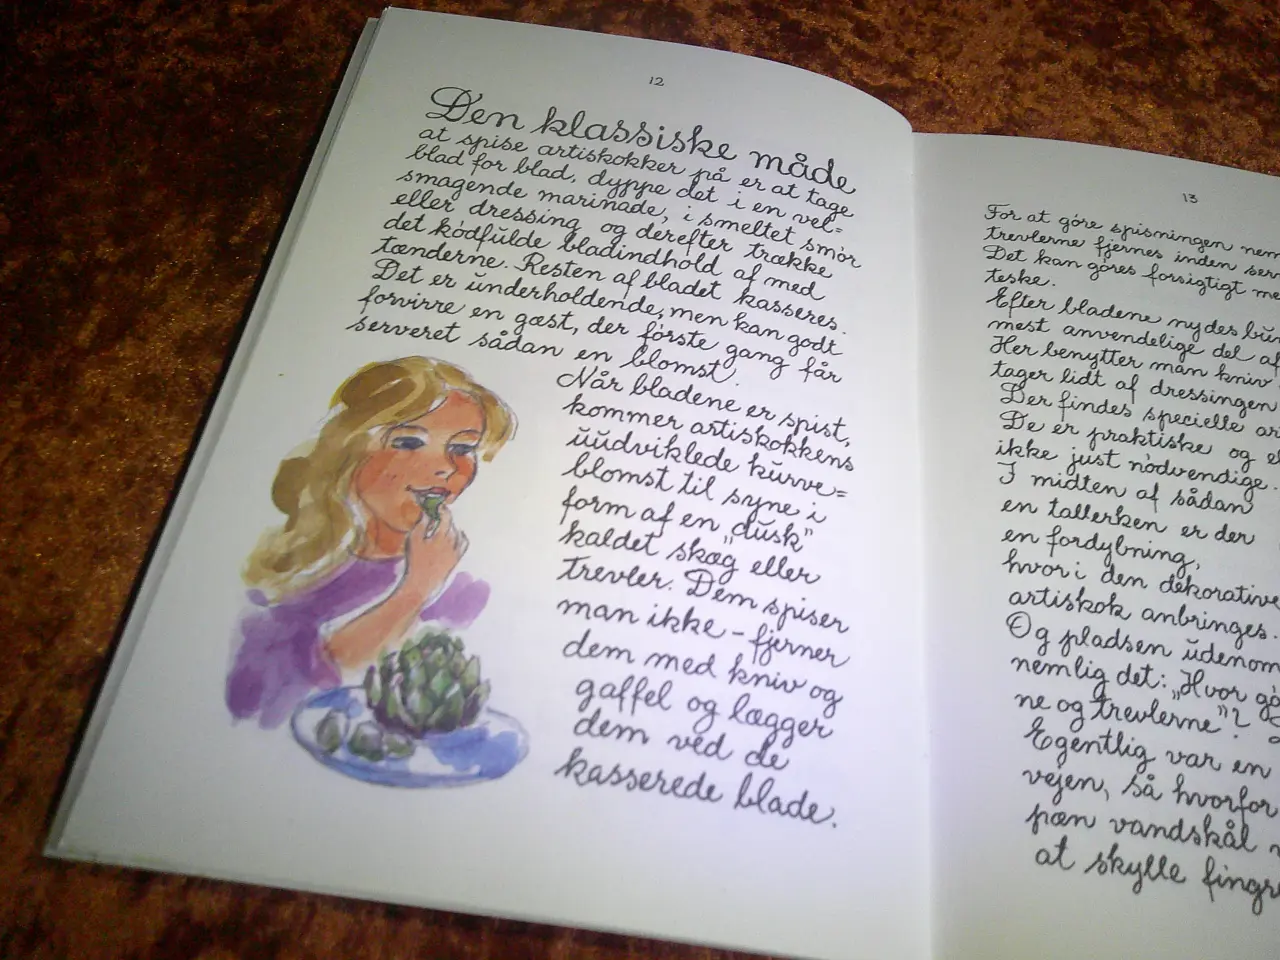 12
Den klassiske måde
at spise artiskokker på er at tage
blad for blad, dyppe det i en vel=
smagende marinade, i smeltet smör
eller dressing og derefter trække
det ködfulde bladindhold af med
tænderne. Resten af bladet kasseres.
Det er underholdende, men kan godt
forvirre en gæst, der förste gang får
serveret sådan en blomst.
Når bladene er spist,
kommer artiskokkens
uudviklede kurve=
blomst til syne i
form af en „dusk"
kaldet skæg eller
trevler. Dem spiser
man ikke – fjerner
dem med kniv og
gaffel og lægger
dem ved de
kasserede blade.
13
For at göre spisningen nem
trevlerne fjernes inden ser
Det kan göres forsigtigt me
teske.
Efter bladene nydes bun
mest anvendelige del af
Her benytter man kniv
tager lidt af dressingen
Der findes specielle ar
De er praktiske og e
ikke just nödvendige.
I midten af sådan
en tallerken er der
en fordybning,
hvori den dekorative
artiskok anbringes.
Og pladsen udenom
nemlig det: „Hvor gö
ne og trevlerne"?
Egentlig var en
vejen, så hvorfor
pæn vandskål
at skylle fingr